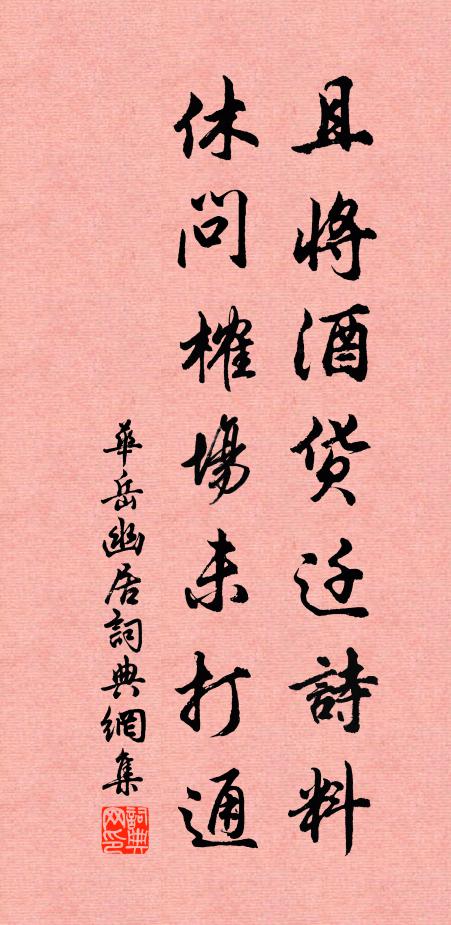 且將酒貨迁詩料
休問榷場未打通
華岳幽居詞典網集
詞典网印